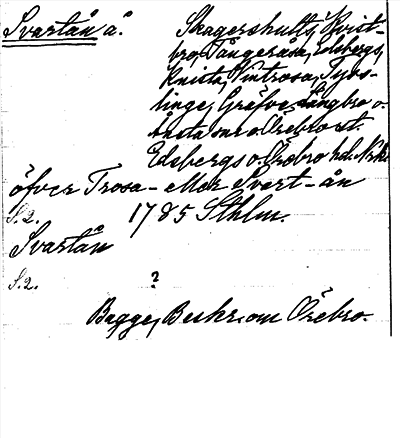 Svartån å. Skagershults, Kvist-
bro, Tångeråsa, Edsbergs,
Knista, Vintrosa, Tyss-
linge, Gräfve, Längbro o.
Örebro st.
Edsbergs o. Örebro hd. Nrke
öfver Trosa- eller Svart-ån
S. 2. 1785 Sthlm.
Svartån
S. 2. ?
Bagge, Beskr. om Örebro.